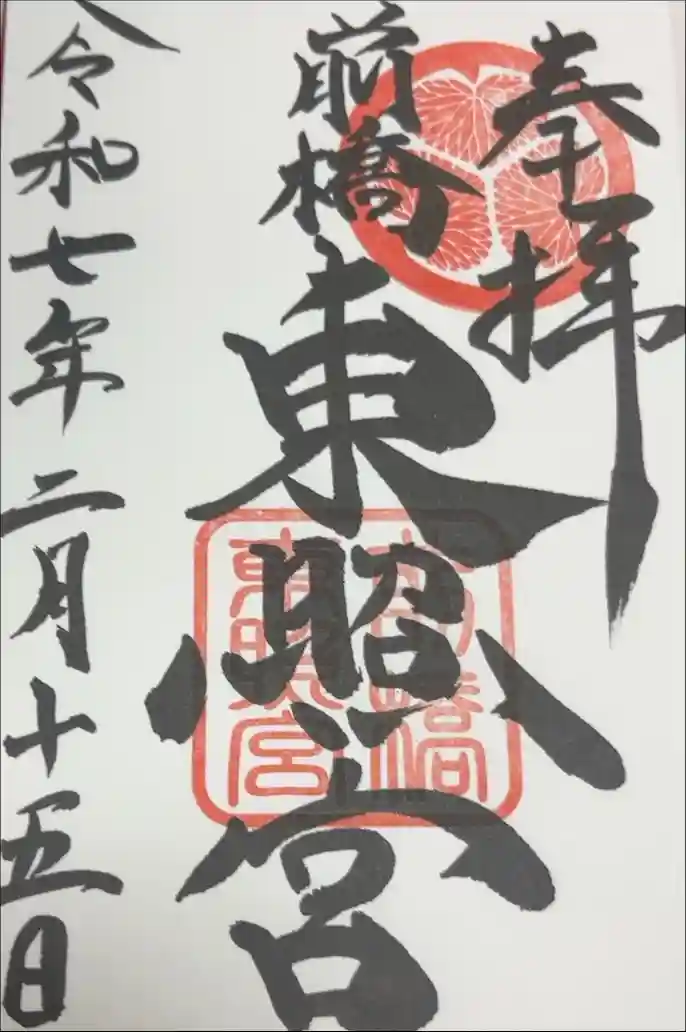 奉拝
前橋
東照宮
令和七年二月十五日
前橋
東照宮